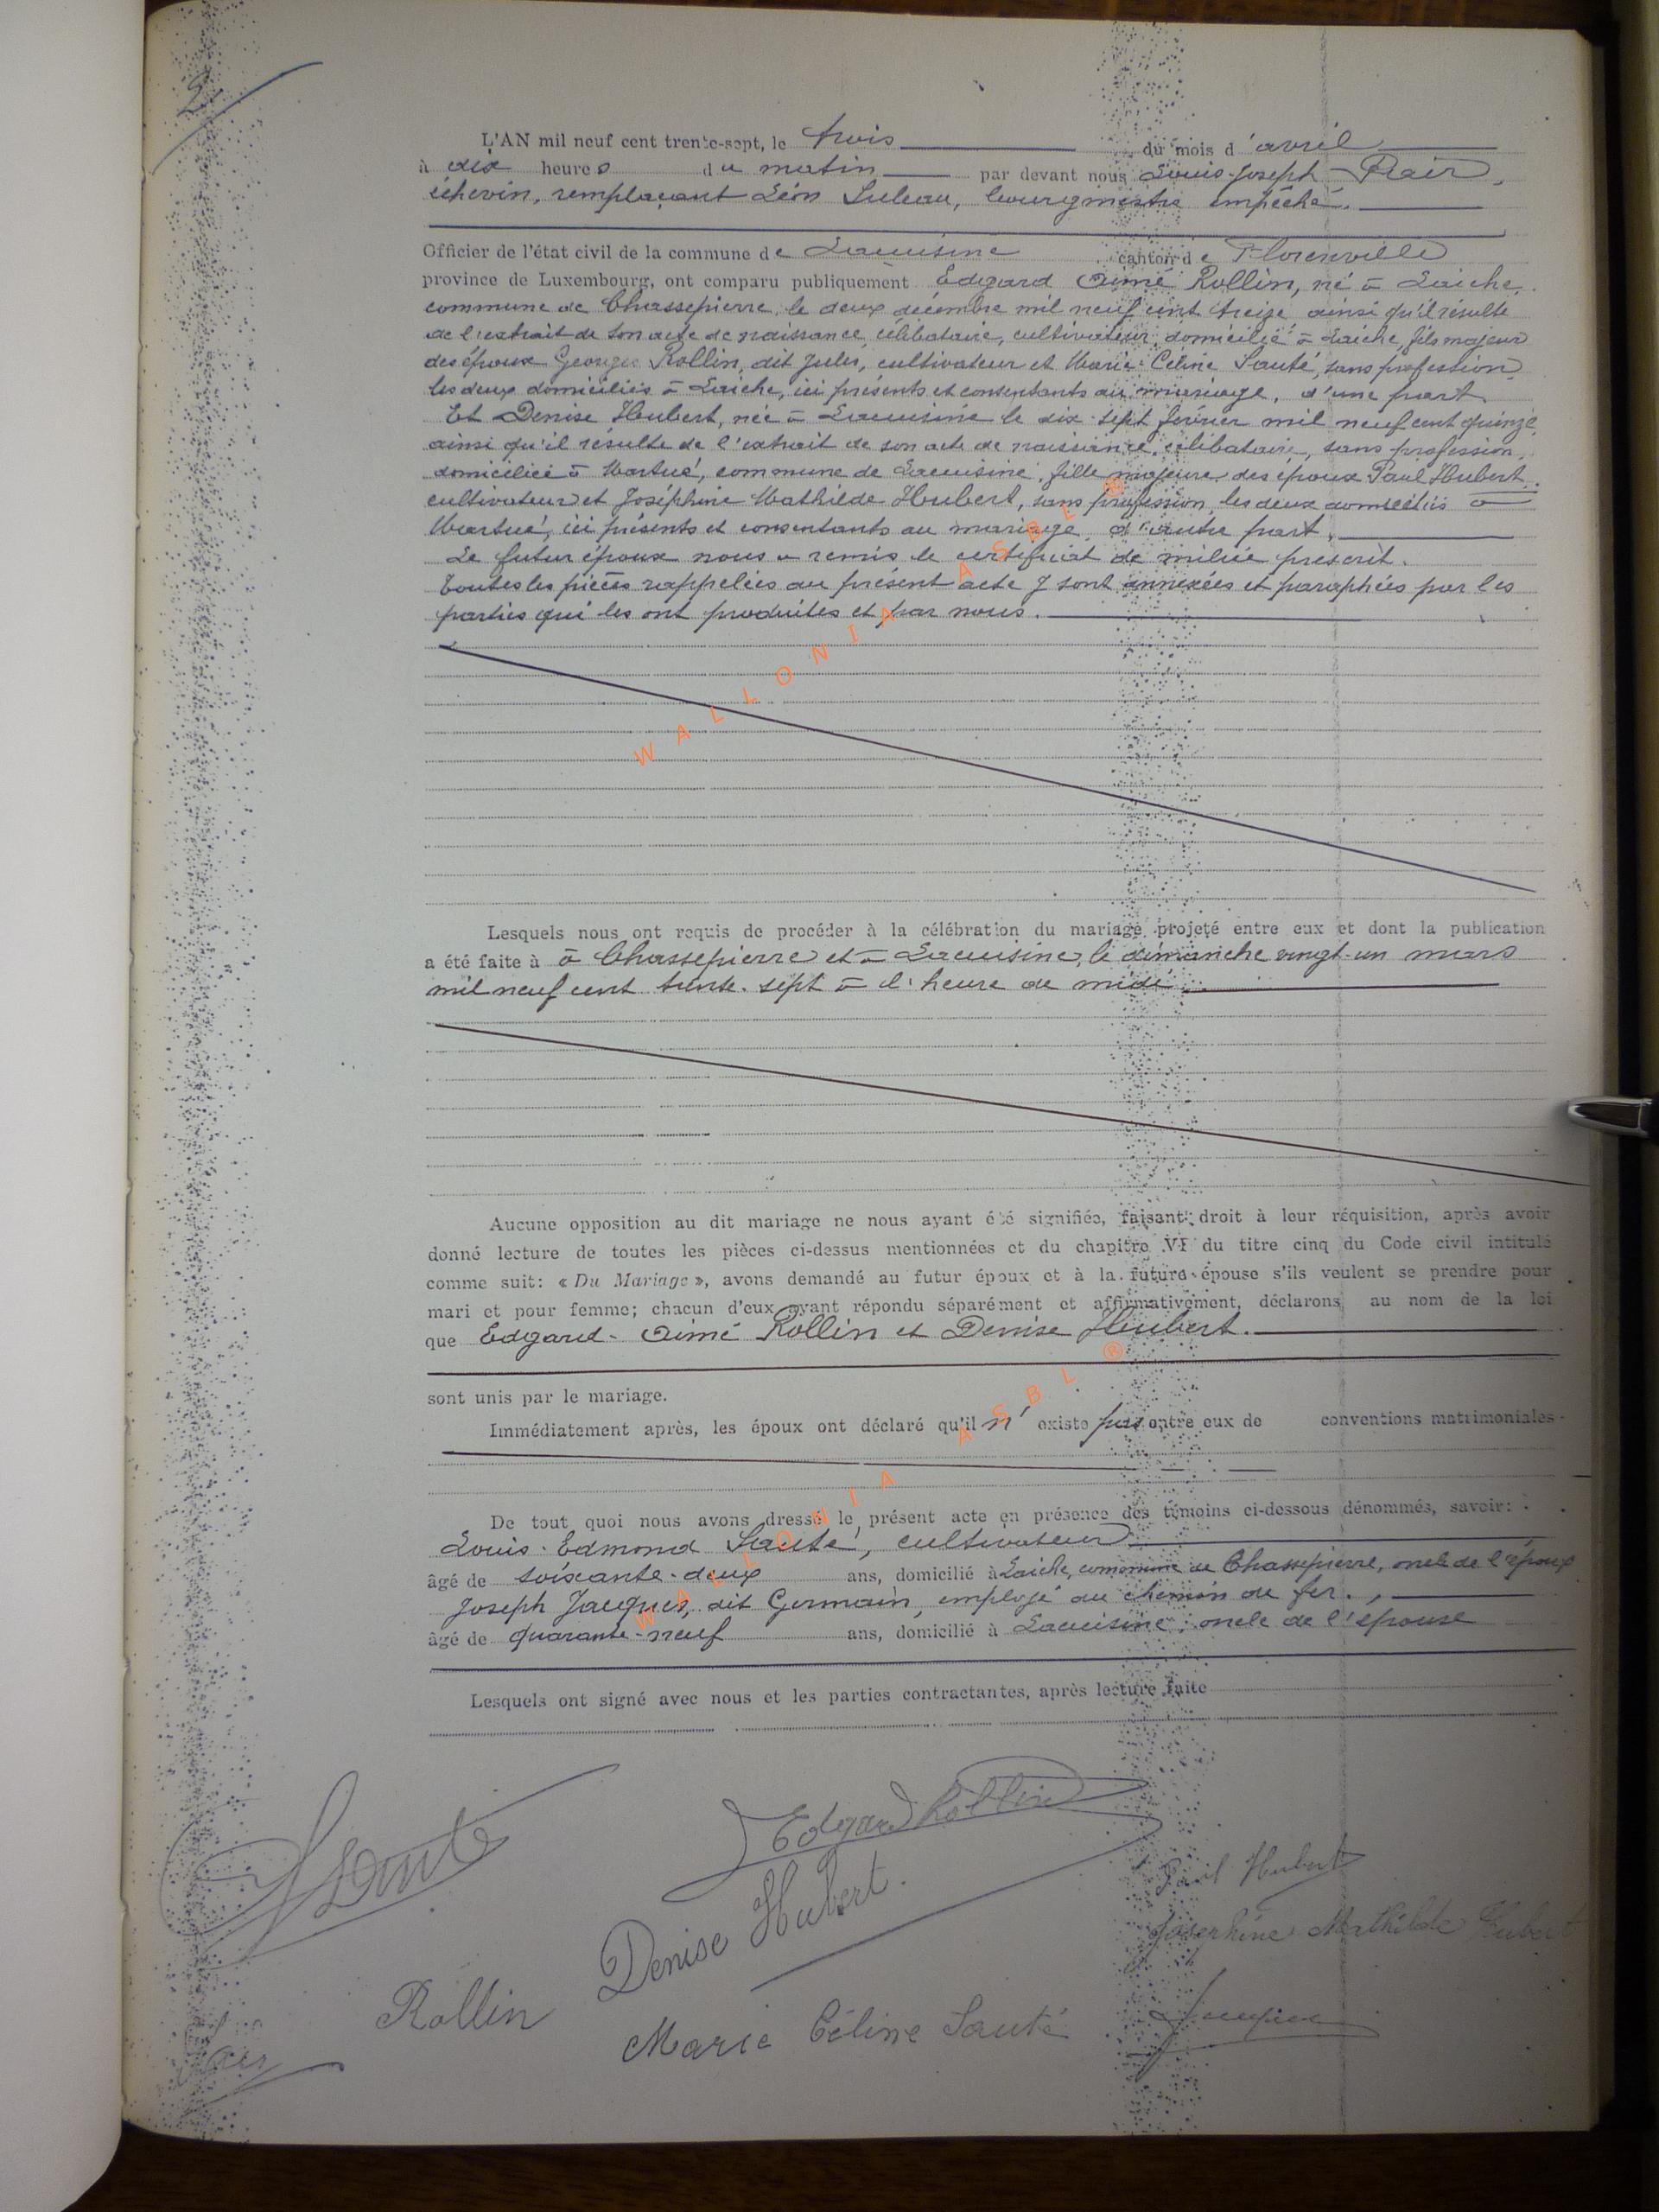 2
L'AN mil neuf cent trente-sept, le trois du mois d'avril
à dix heures du matin par devant nous Louis-Joseph Pair,
échevin, remplaçant Léon Suleau, bourgmestre empêché.
Officier de l'état civil de la commune de Lacuisine canton de Florenville
province de Luxembourg, ont comparu publiquement Edgard Aimé Rollin, né à Laiche,
commune de Chassepierre, le deux décembre mil neuf cent treize ainsi qu'il résulte
de l'extrait de son acte de naissance, célibataire, cultivateur, domicilié à Laiche, fils majeur
des époux Georges Rollin, dit Jules, cultivateur et Marie-Céline Sauté, sans profession,
les deux domiciliés à Laiche, ici présents et consentants au mariage, d'une part.
Et Denise Hubert, née à Lacuisine le dix-sept février mil neuf cent quinze,
ainsi qu'il résulte de l'extrait de son acte de naissance, célibataire, sans profession,
domiciliée à Martué, commune de Lacuisine, fille majeure des époux Paul Hubert,
cultivateur et Joséphine Mathilde Hubert, sans profession, les deux domiciliés à
Martué, ici présents et consentants au mariage, d'autre part.
Le futur époux nous a remis le certificat de milice prescrit.
Toutes les pièces rappelées au présent acte y sont annexées et paraphées par les
parties qui les ont produites et par nous.
WALLONIA ASBL ®
Lesquels nous ont requis de procéder à la célébration du mariage projeté entre eux et dont la publication
a été faite à à Chassepierre et à Lacuisine, le dimanche vingt-un mars
mil neuf cent trente-sept à l'heure de midi.
Aucune opposition au dit mariage ne nous ayant été signifiée, faisant droit à leur réquisition, après avoir
donné lecture de toutes les pièces ci-dessus mentionnées et du chapitre VI du titre cinq du Code civil intitulé
comme suit: « Du Mariage », avons demandé au futur époux et à la future épouse s'ils veulent se prendre pour
mari et pour femme; chacun d'eux ayant répondu séparément et affirmativement, déclarons au nom de la loi
que Edgard-Aimé Rollin et Denise Hubert.
sont unis par le mariage.
Immédiatement après, les époux ont déclaré qu'il n'existe pas entre eux de conventions matrimoniales
WALLONIA ASBL ®
De tout quoi nous avons dressé le présent acte en présence des témoins ci-dessous dénommés, savoir:
Louis-Edmond Sauté, cultivateur
âgé de soixante-deux ans, domicilié à Laiche, commune de Chassepierre, oncle de l'époux
Joseph Jacques, dit Germain, employé au chemin de fer,
âgé de quarante-neuf ans, domicilié à Lacuisine, oncle de l'épouse
Lesquels ont signé avec nous et les parties contractantes, après lecture faite
Edgard Rollin
Sauté
Paul Hubert
Denise Hubert.
Joséphine Mathilde Hubert
Rollin
Marie Céline Sauté